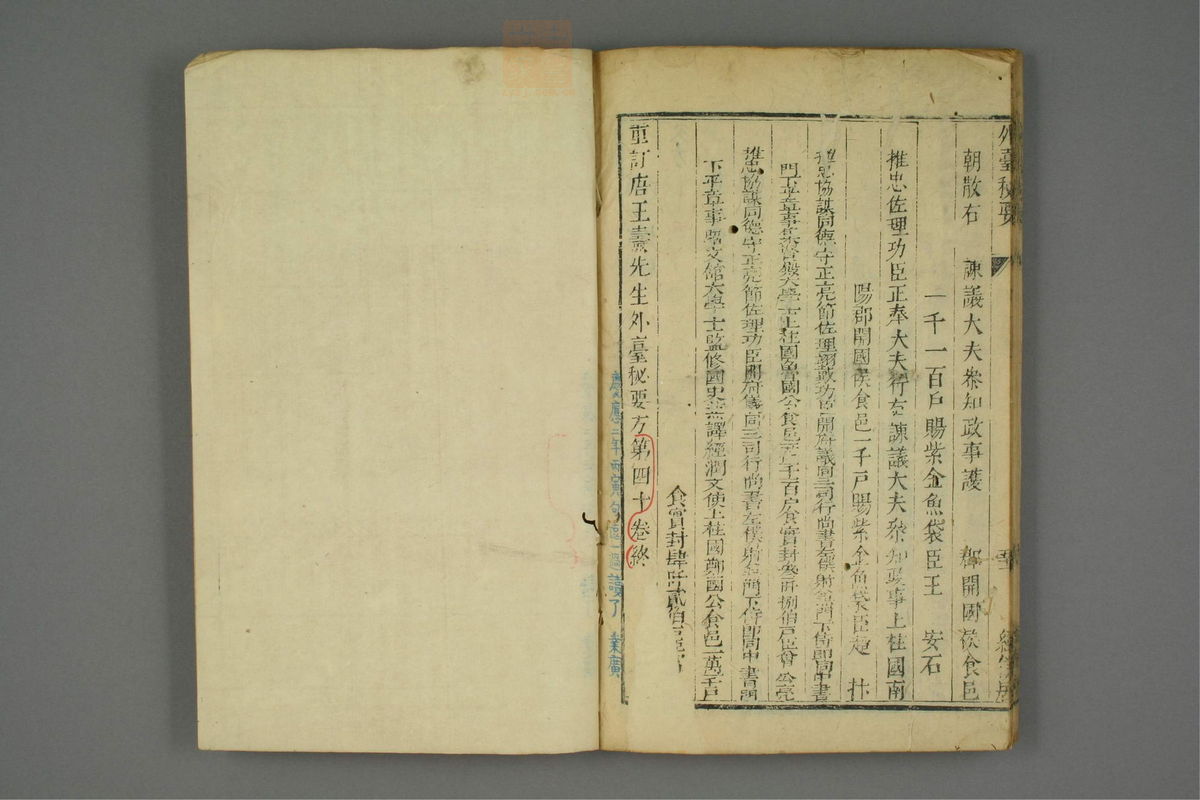 外臺秘要
朝散右 諫議大夫叅知政事護 郡開國侯食邑
一千一百戶賜紫金魚袋臣王 安石
推忠佐理功臣正奉大夫行左諫議大夫叅知政事上柱國南
陽郡開國侯食邑一千戶賜紫金魚袋臣趙 抃
推忠協謀同德守正亮節佐理翊戴功臣開府儀同三司行尚書左僕射兼門下侍郎同中書
門下平章事集賢殿大學士上柱國魯國公食邑 千 百戶食實封 阡捌伯戶臣曾 公亮
推忠協謀同德守正亮節佐理功臣開府儀同三司行尚書左僕射兼門下侍郎同中書門
下平章事昭文館大學士監修國史兼譯經潤文使上柱國鄭國公食邑一萬 千戶
食實封肆阡貳伯戶臣富
重訂唐王燾先生外臺秘要方第四十卷終
慶應二年 寅 讀了 業廣